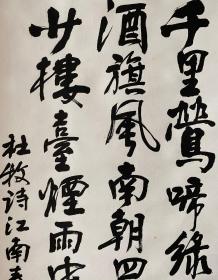 千里鶯啼绿
酒旗風南朝四
廿樓臺煙雨中
杜牧诗江南春